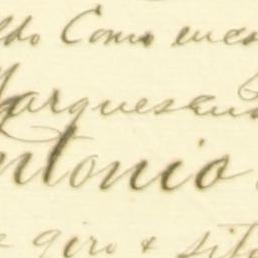 ldo Como enca
Marques en
ntonio
e giro & sito